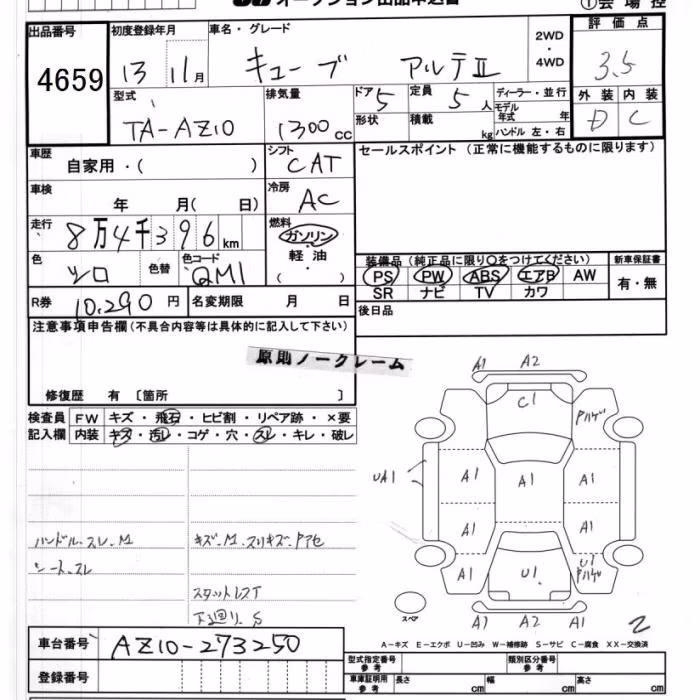 オークション出品申込書
①会場控
出品番号
4659
初度登録年月
13 11月
車名・グレード
キューブ アルテⅡ
2WD
・
4WD
評価点
3.5
外装 内装
D C
型式
TA-AZ10
排気量
1300cc
ドア 5
形状
定員 5人
積載 kg
ディーラー・並行
モデル年式 年
ハンドル 左・右
車歴
自家用・( )
シフト
CAT
セールスポイント (正常に機能するものに限ります)
車検
年 月( 日)
冷房
AC
走行
8万4千396km
燃料
ガソリン
軽油
( )
色
シロ
色替
色コード
QM1
装備品 (純正品に限り○をつけてください)
PS PW ABS エアB AW
SR ナビ TV カワ
新車保証書
有・無
R券
10.290円
名変期限 月 日
後日品
注意事項申告欄(不具合内容等は具体的に記入して下さい)
原則ノークレーム
修復歴 有〔箇所 〕
検査員
記入欄
FW キズ・飛石・ヒビ割・リペア跡・×要
内装 キズ・汚レ・コゲ・穴・スレ・キレ・破レ
ハンドル.スレ.M
シート.スレ
キズ.M.スリキズ.Pアセ
スタットレスT
下廻リ.S
A1 A2
C1
Pハゲ
UA1
A1 A1 A1
A1 A1
A1
U1
U1
Pハゲ
A1 A2 A1
スペア
2
A－キズ E－エクボ U－凹み W－補修跡 S－サビ C－腐食 XX－交換済
車台番号
AZ10-273250
登録番号
型式指定番号
参考
類別区分番号
参考
車庫証明用
参考
長さ cm 幅 cm 高さ cm